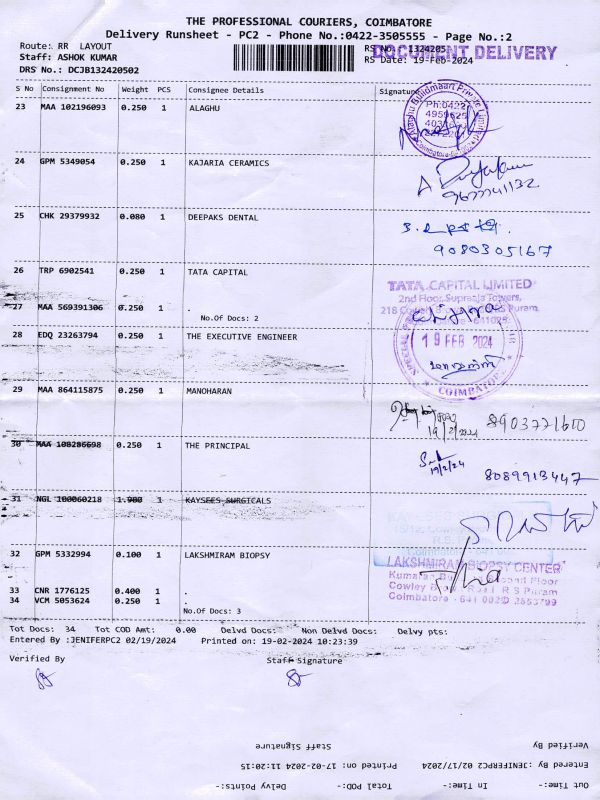 THE PROFESSIONAL COURIERS, COIMBATORE
Delivery Runsheet - PC2 - Phone No.:0422-3505555 - Page No.:2
Route: RR LAYOUT
RS No.: 1324205
DOCUMENT DELIVERY
Staff: ASHOK KUMAR
RS Date: 19-Feb-2024
DRS No.: DCJB132420502
S No Consignment No Weight PCS Consignee Details Signature
23 MAA 102196093 0.250 1 ALAGHU
Alaghu Buildmaart Private Limited
Ph:0422
4959625
24 GPM 5349054 0.250 1 KAJARIA CERAMICS
25 CHK 29379932 0.080 1 DEEPAKS DENTAL
9080305167
26 TRP 6902541 0.250 1 TATA CAPITAL
TATA CAPITAL LIMITED
2nd Floor, Supreaja Towers,
27 MAA 569391306 0.250 1 .
No.Of Docs: 2
28 EDQ 23263794 0.250 1 THE EXECUTIVE ENGINEER
19 FEB 2024
COIMBATORE
29 MAA 864115875 0.250 1 MANOHARAN
8903771600
19/2/2024
30 MAA 108286698 0.250 1 THE PRINCIPAL
19/2/24
8089913447
31 NGL 100060218 1.900 1 KAYSEES SURGICALS
32 GPM 5332994 0.100 1 LAKSHMIRAM BIOPSY
LAKSHMIRAM BIOPSY CENTER
Floor
Cowley Road R S Puram
Coimbatore - 641 002
33 CNR 1776125 0.400 1 .
34 VCM 5053624 0.250 1 .
No.Of Docs: 3
Tot Docs: 34 Tot COD Amt: 0.00 Delvd Docs: Non Delvd Docs: Delvy pts:
Entered By :JENIFERPC2 02/19/2024 Printed on: 19-02-2024 10:23:39
Verified By Staff Signature
Out Time:- In Time:- Total POD:- Delvy Points:-
Entered By :JENIFERPC2 02/17/2024 Printed on: 17-02-2024 11:20:15
Verified By Staff Signature